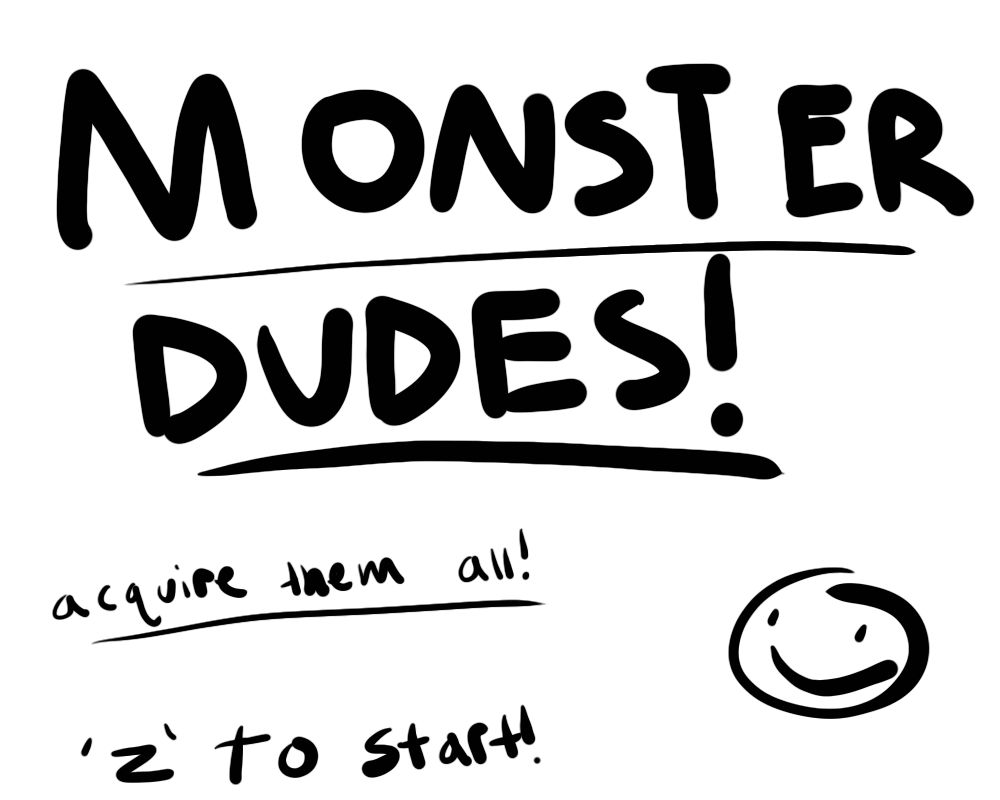 MONSTER
DUDES!
acquire them all!
'z' to start!